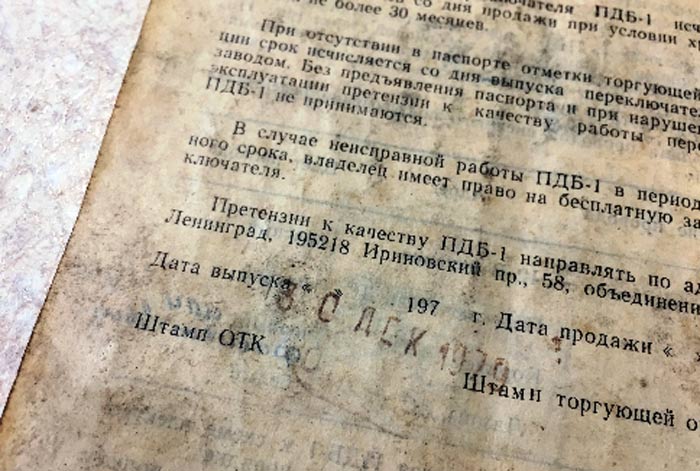 ключателя ПДБ-1 исч
со дня продажи при условии х
не более 30 месяцев.
При отсутствии в паспорте отметки торгующей
ции срок исчисляется со дня выпуска переключате
заводом. Без предъявления паспорта и при наруше
эксплуатации претензии к качеству работы пере
ПДБ-1 не принимаются.
В случае неисправной работы ПДБ-1 в период
ного срока, владелец имеет право на бесплатную за
ключателя.
Претензии к качеству ПДБ-1 направлять по ад
Ленинград, 195218 Ириновский пр., 58, объединени
Дата выпуска « » 197 г. Дата продажи «
30 ДЕК 1970
Штамп ОТК
Штамп торгующей о